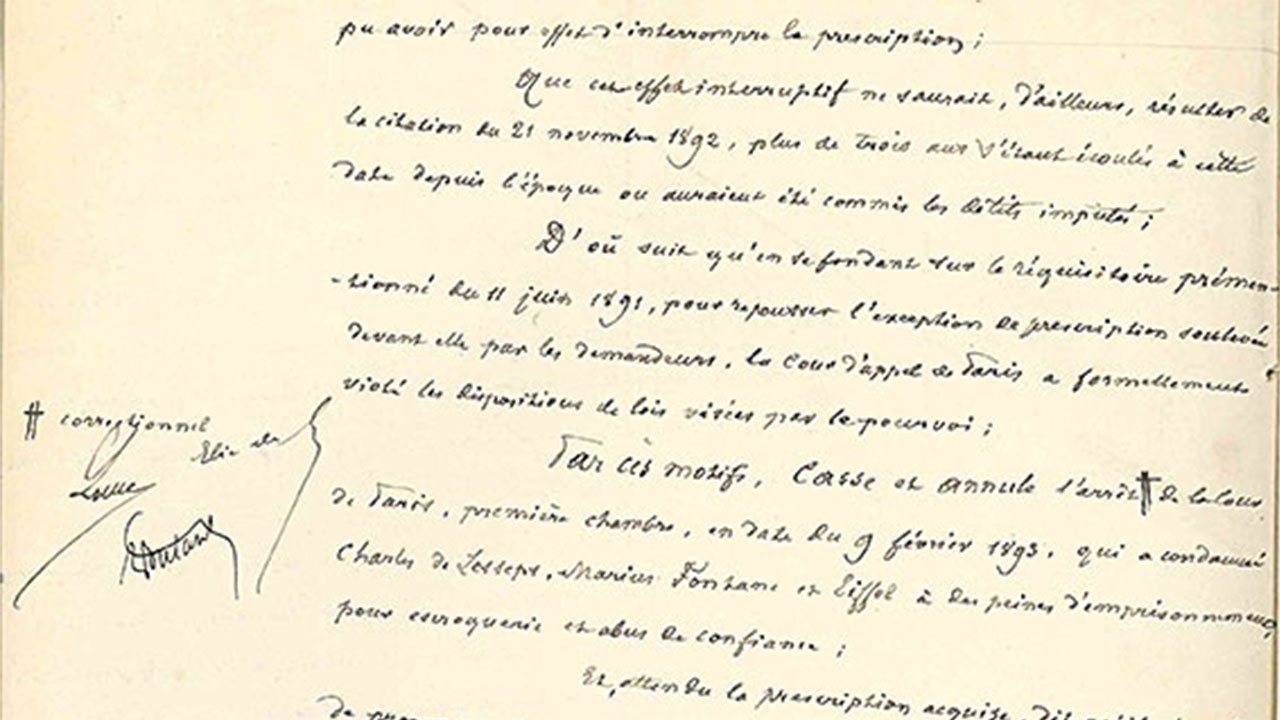 pu avoir pour effet d'interrompre la prescription ;
Que cet effet interruptif ne saurait, d'ailleurs, résulter de
la citation du 21 novembre 1892, plus de trois ans s'étant écoulés à cette
date depuis l'époque ou auraient été commis les délits imputés ;
D'où suit qu'en se fondant sur le réquisitoire prémen-
-tionné du 11 juin 1891, pour repousser l'exception de prescription soulevée
devant elle par les demandeurs, la Cour d'appel de Paris a formellement
violé les dispositions de lois visées par le pourvoi ;
‡ correctionnel
Par ces motifs, Casse et annule l'arrêt ‡ de la Cour
de Paris, première chambre, en date du 9 février 1893, qui a condamné
Charles de Lesseps, Marius Fontane et Eiffel à des peines d'emprisonnement,
pour escroquerie et abus de confiance ;
Et, attendu la prescription acquise,
de